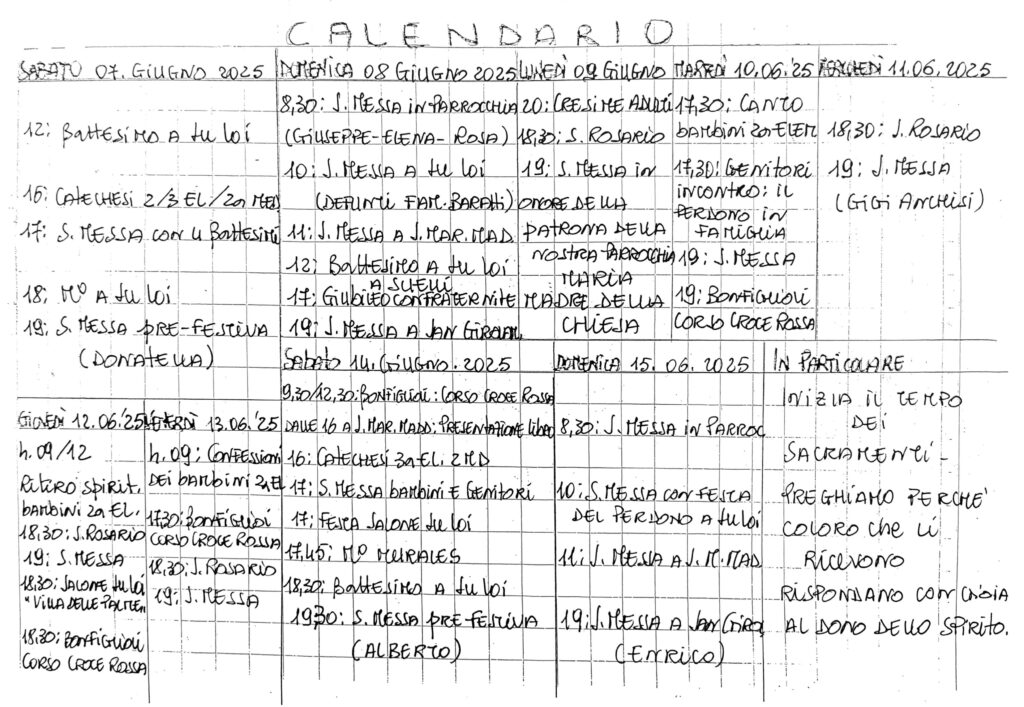 CALENDARIO
SABATO 07. GIUGNO 2025
12: BATTESIMO A tu loi
16: CATECHESI 2/3 EL/2a MED
17: S. MESSA CON 4 BATTESIMI
18: Mº A tu loi
19: S. MESSA PRE-FESTIVA
(DONATELLA)
DOMENICA 08 GIUGNO 2025
8,30: S. MESSA IN PARROCCHIA
(GIUSEPPE-ELENA-ROSA)
10: S. MESSA A tu loi
(DEFUNTI FAM. BARATTI)
11: S. MESSA A S. MAR. MAD
12: BATTESIMO A tu loi
A SUELLI
17: GIUBILEO CONFRATERNITE
19: S. MESSA A SAN GIROLAM.
LUNEDÌ 09 GIUGNO
20: CRESIME ADULTI
18,30: S. ROSARIO
19: S. MESSA IN
ONORE DELLA
PATRONA DELLA
NOSTRA PARROCCHIA
MARIA
MADRE DELLA
CHIESA
MARTEDÌ 10.06.'25
17,30: CANTO
BAMBINI 2a ELEM
17,30: GENITORI
INCONTRO: IL
PERDONO IN
FAMIGLIA
19: S. MESSA
19: BONFIGLIOLI
CORSO CROCE ROSSA
MERCOLEDÌ 11.06.2025
18,30: S. ROSARIO
19: S. MESSA
(GIGI ANCHISI)
GIOVEDÌ 12.06.'25
h. 09/12
RITIRO SPIRIT.
BAMBINI 2a EL.
18,30: S. ROSARIO
19: S. MESSA
18,30: SALONE tu loi
"VILLA DELLE PALME"
18,30: BONFIGLIOLI
CORSO CROCE ROSSA
VENERDÌ 13.06.'25
h. 09: CONFESSIONI
DEI BAMBINI 2a EL
17,30: BONFIGLIOLI
CORSO CROCE ROSSA
18,30: S. ROSARIO
19: S. MESSA
SABATO 14. GIUGNO. 2025
9,30/12,30: BONFIGLIOLI: CORSO CROCE ROSSA
DALLE 16 A S. MAR. MADD: PRESENTAZIONE LIBRO
16: CATECHESI 3a EL. 2 MD
17: S. MESSA BAMBINI E GENITORI
17: FESTA SALONE tu loi
17,45: Mº MURALES
18,30: BATTESIMO A tu loi
19,30: S. MESSA PRE-FESTIVA
(ALBERTO)
DOMENICA 15.06.2025
8,30: S. MESSA IN PARROC
10: S. MESSA CON FESTA
DEL PERDONO A tu loi
11: S. MESSA A S. M. MAD
19: S. MESSA A SAN GIRO
(ENRICO)
IN PARTICOLARE
INIZIA IL TEMPO
DEI
SACRAMENTI -
PREGHIAMO PERCHE'
COLORO CHE LI
RICEVONO
RISPONDANO CON GIOIA
AL DONO DELLO SPIRITO.